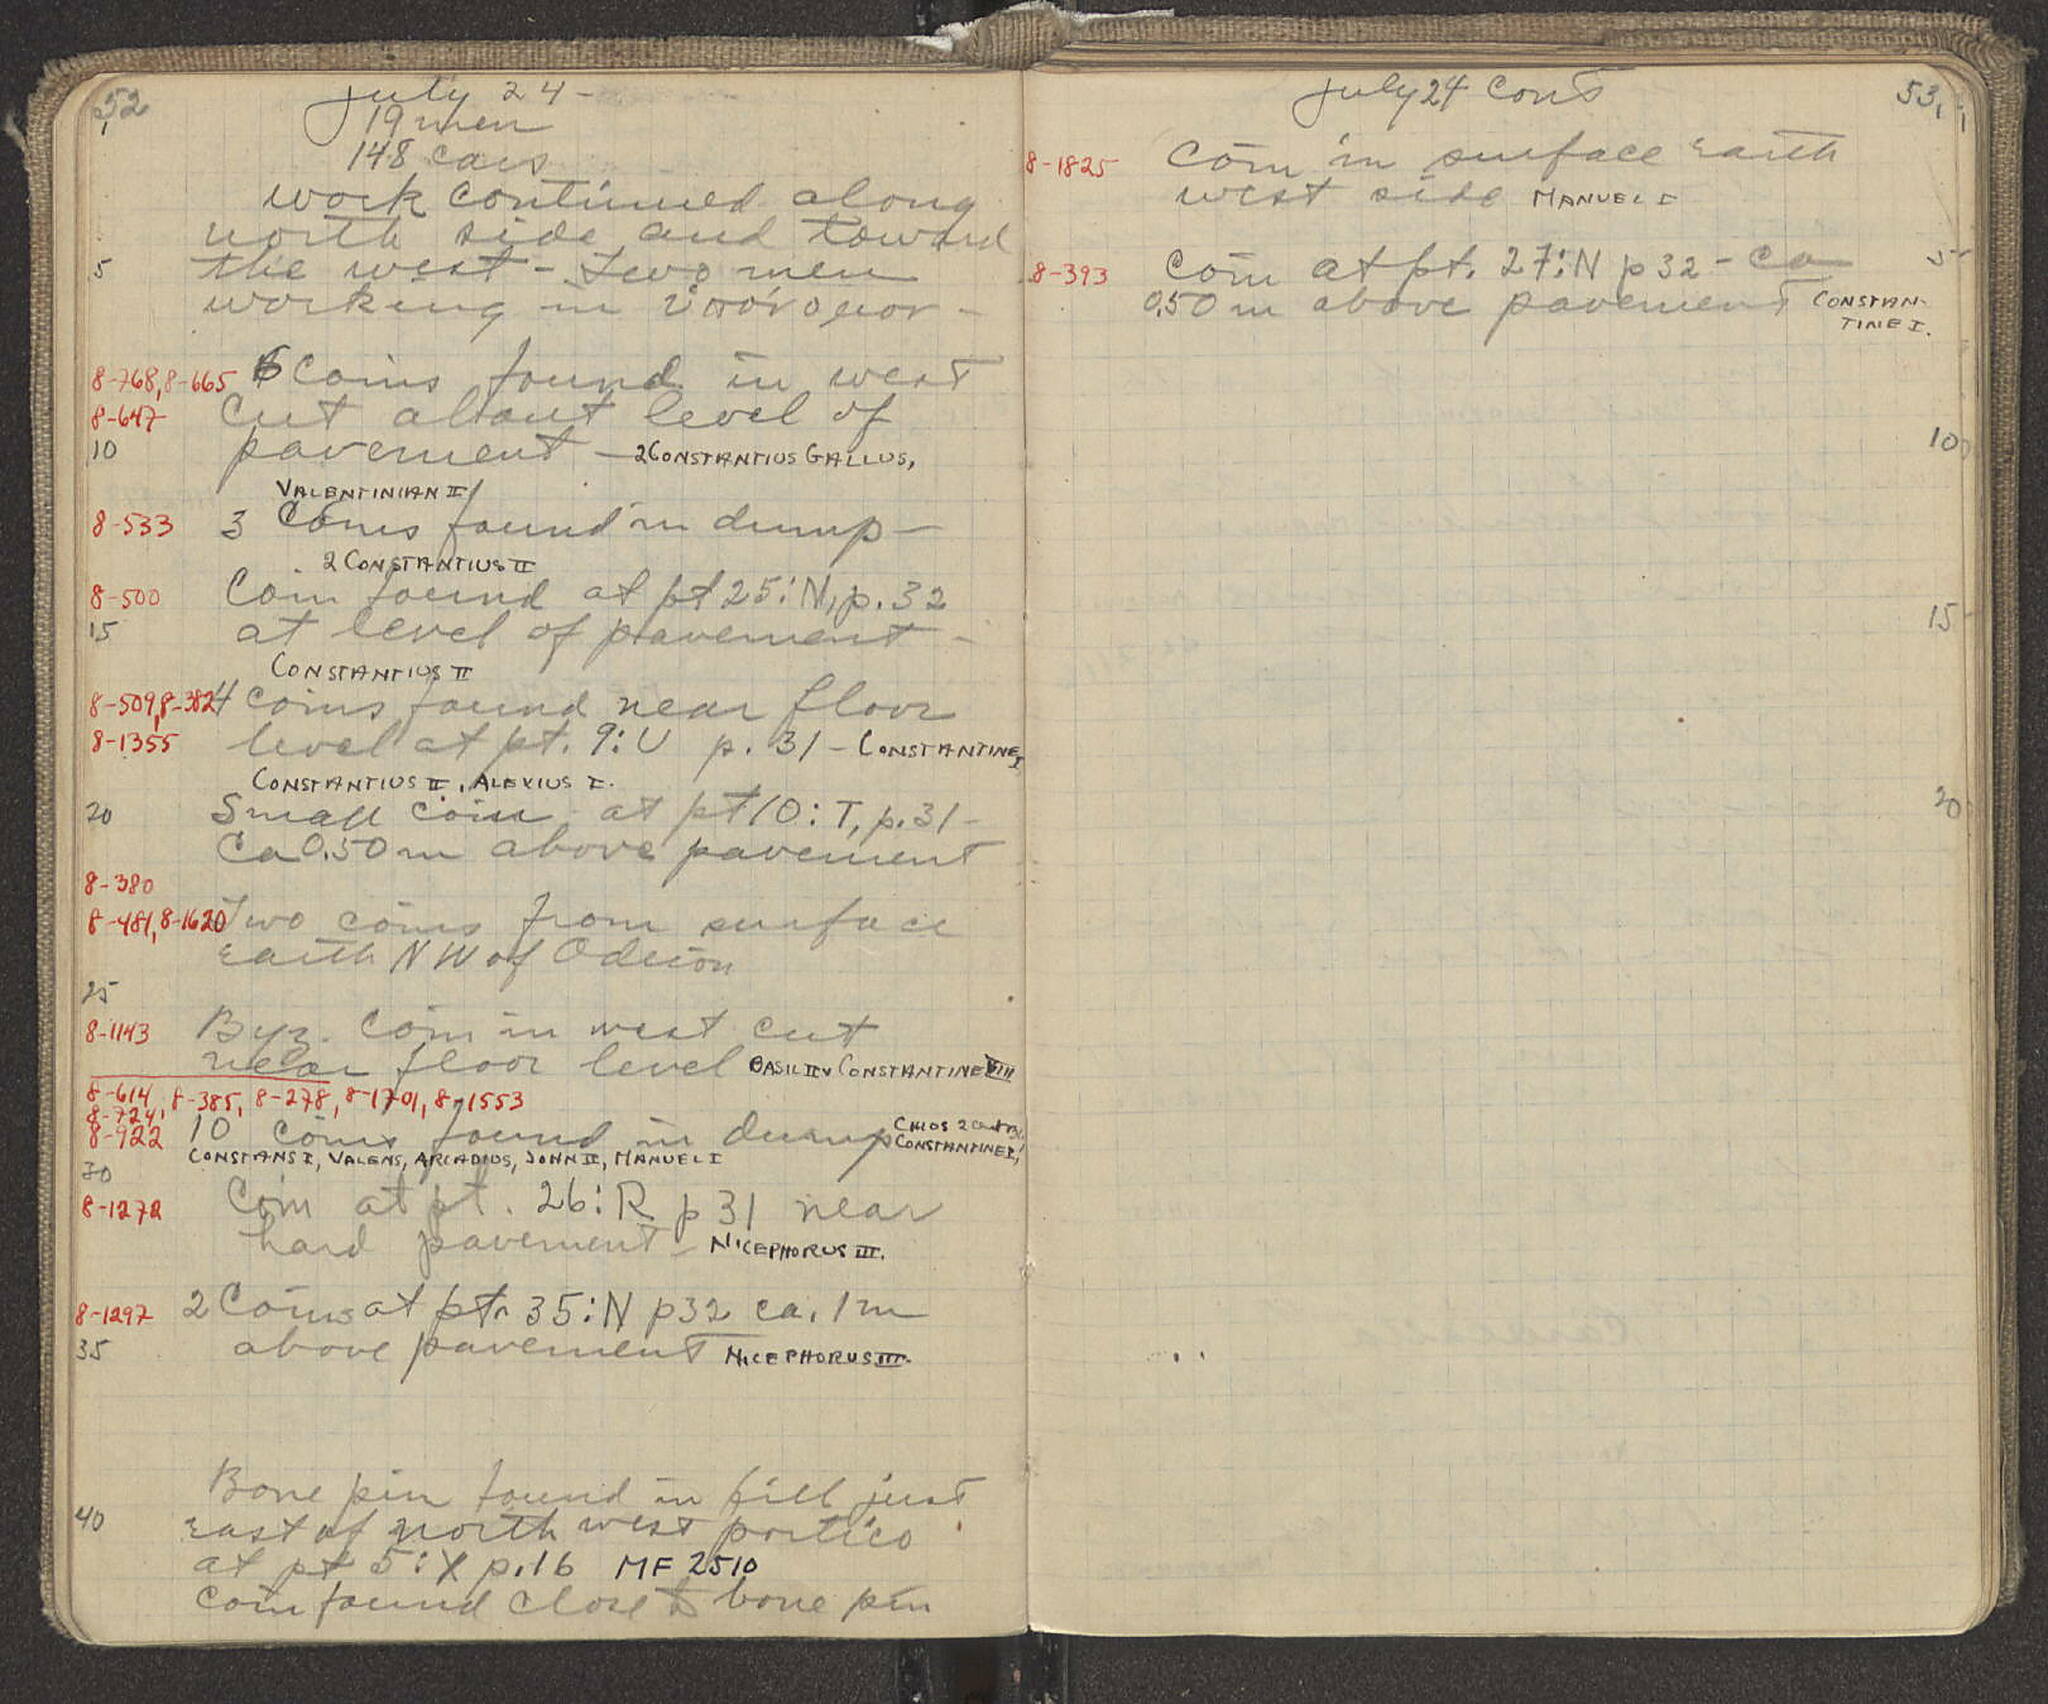 52
July 24 -
1
19 men
148 cars
work continued along
north side and toward
5 the west - Two men
working in ὑπόνομον -
8-768, 8-665 6 Coins found in west
8-647 Cut about level of
10 pavement - 2 CONSTANTIUS GALLUS,
VALENTINIAN II
8-533 3 Coins found in dump -
2 CONSTANTIUS II
8-500 Coin found at pt 25:N, p. 32
15 at level of pavement -
CONSTANTIUS II
8-509, 8-382 4 coins found near floor
8-1355 level at pt. 9:U p. 31 - CONSTANTINE I
CONSTANTIUS II, ALEXIUS I.
20 Small coin at pt 10:T, p. 31 -
Ca 0.50 m above pavement
8-380
8-481, 8-1620 Two coins from surface
earth NW of Odeion
25
8-1143 Byz. Coin in west cut
near floor level BASIL II & CONSTANTINE VIII
8-614, 8-385, 8-278, 8-1701, 8-1553
8-724,
8-922 10 coins found in dump CHIOS 2 cent BC, CONSTANTINE I,
CONSTANS I, VALENS, ARCADIUS, JOHN II, MANUEL I
30
8-1272 Coin at pt. 26:R p 31 near
hard pavement - NICEPHORUS III.
8-1297 2 Coins at pt. 35:N p 32 ca. 1 m
35 above pavement NICEPHORUS III.
Bone pin found in fill just
40 east of north west portico
at pt 5:X p. 16 MF 2510
Coin found close to bone pin
July 24 Cont
53
1
8-1825 Coin in surface earth
west side MANUEL I
8-393 Coin at pt. 27:N p 32 - Ca 5
0.50 m above pavement CONSTAN-
TINE I.
10
15
20